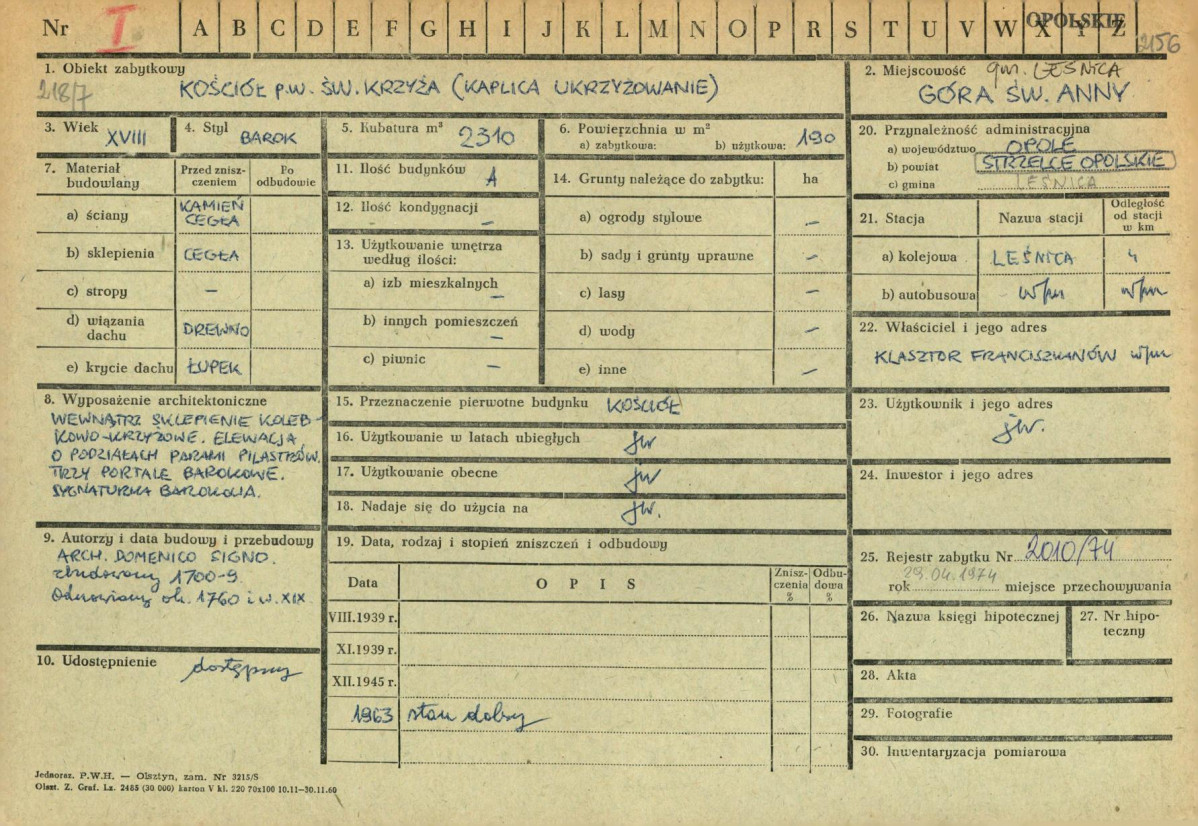 Nr I A B C D E F G H I J K L M N O P R S T U V W X Y Z
OPOLSKIE
2156
1. Obiekt zabytkowy
218/7
KOŚCIÓŁ P.W. ŚW. KRZYŻA (KAPLICA UKRZYŻOWANIE)
2. Miejscowość gm. LEŚNICA
GÓRA ŚW. ANNY
3. Wiek XVIII
4. Styl BAROK
5. Kubatura m² 2310
6. Powierzchnia w m²
a) zabytkowa: b) użytkowa: 190
7. Materiał budowlany
Przed zniszczeniem
Po odbudowie
a) ściany KAMIEŃ CEGŁA
b) sklepienia CEGŁA
c) stropy –
d) wiązania dachu DREWNO
e) krycie dachu ŁUPEK
8. Wyposażenie architektoniczne
WEWNĄTRZ SKLEPIENIE KOLEB-
KOWO-KRZYŻOWE. ELEWACJA
O PODZIAŁACH PARAMI PILASTRÓW.
TRZY PORTALE BAROKOWE.
SYGNATURKA BAROKOWA.
9. Autorzy i data budowy i przebudowy
ARCH. DOMENICO SIGNO.
zbudowany 1700-9.
Odnowiony ok. 1760 i w. XIX.
10. Udostępnienie dostępny
11. Ilość budynków 1
12. Ilość kondygnacji –
13. Użytkowanie wnętrza
według ilości:
a) izb mieszkalnych –
b) innych pomieszczeń –
c) piwnic –
14. Grunty należące do zabytku: ha
a) ogrody stylowe –
b) sady i grunty uprawne –
c) lasy –
d) wody –
e) inne –
15. Przeznaczenie pierwotne budynku KOŚCIÓŁ
16. Użytkowanie w latach ubiegłych jw
17. Użytkowanie obecne jw
18. Nadaje się do użycia na jw.
19. Data, rodzaj i stopień zniszczeń i odbudowy
Data O P I S Zniszczenia % Odbudowa %
VIII.1939 r.
XI.1939 r.
XII.1945 r.
1963 stan dobry
20. Przynależność administracyjna
a) województwo OPOLE
b) powiat STRZELCE OPOLSKIE
c) gmina LEŚNICA
21. Stacja Nazwa stacji Odległość od stacji w km
a) kolejowa LEŚNICA 4
b) autobusowa w/m w/m
22. Właściciel i jego adres
KLASZTOR FRANCISZKANÓW w/m
23. Użytkownik i jego adres
jw.
24. Inwestor i jego adres
25. Rejestr zabytku Nr 2010/74
rok 29.04.1974 miejsce przechowywania
26. Nazwa księgi hipotecznej
27. Nr hipo-
teczny
28. Akta
29. Fotografie
30. Inwentaryzacja pomiarowa
Jednoraz. P.W.H. — Olsztyn, zam. Nr 3215/S
Olszt. Z. Graf. Lz. 2485 (30 000) karton V kl. 220 70x100 10.11—30.11.60